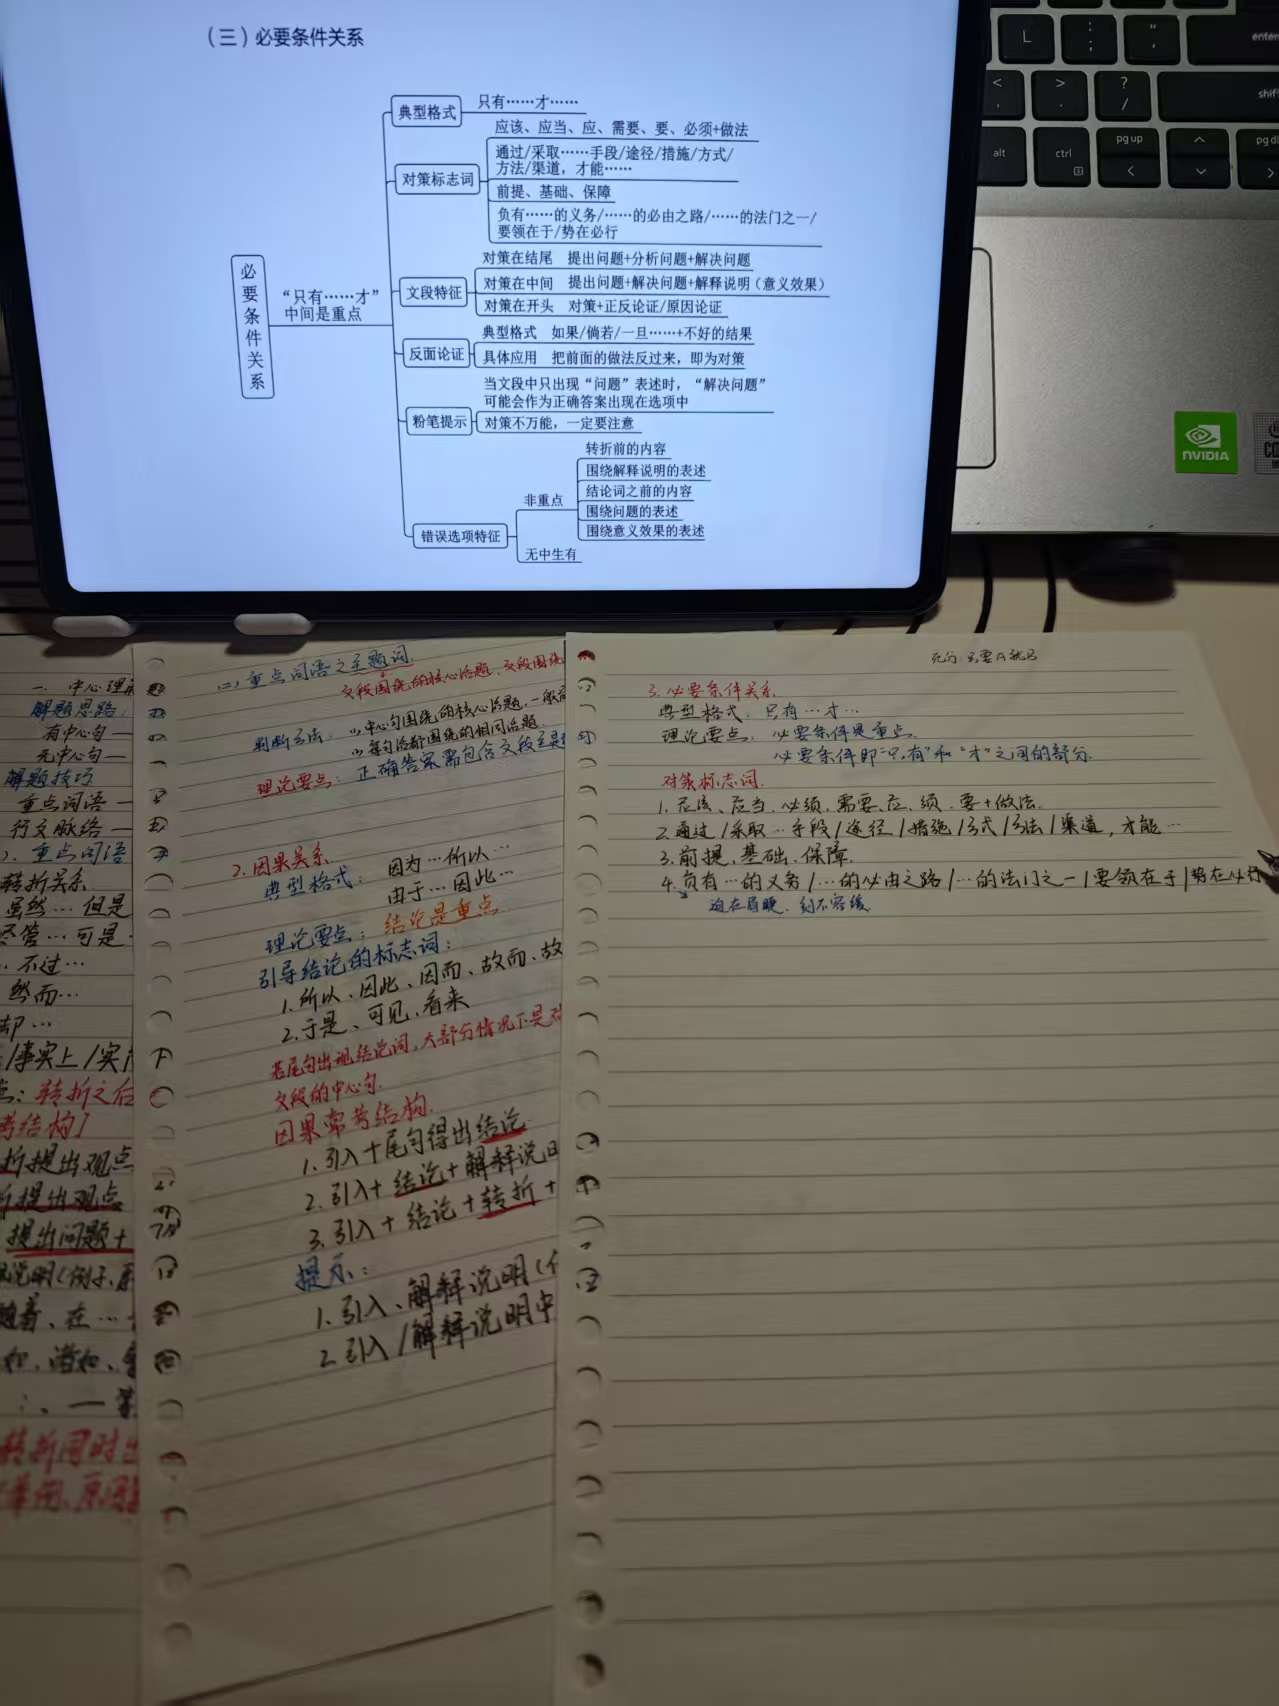 （三）必要条件关系
必要条件关系
“只有……才”
中间是重点
典型格式
只有……才……
对策标志词
应该、应当、应、需要、要、必须+做法
通过/采取……手段/途径/措施/方式/
方法/渠道，才能……
前提、基础、保障
负有……的义务/……的必由之路/……的法门之一/
要领在于/势在必行
文段特征
对策在结尾 提出问题+分析问题+解决问题
对策在中间 提出问题+解决问题+解释说明（意义效果）
对策在开头 对策+正反论证/原因论证
反面论证
典型格式 如果/倘若/一旦……+不好的结果
具体应用 把前面的做法反过来，即为对策
粉笔提示
当文段中只出现“问题”表述时，“解决问题”
可能会作为正确答案出现在选项中
对策不万能，一定要注意
错误选项特征
非重点
转折前的内容
围绕解释说明的表述
结论词之前的内容
围绕问题的表述
围绕意义效果的表述
无中生有
L
:
;
"
'
enter
<
,
>
.
?
/
shift
alt
ctrl
pg up
NVIDIA
一. 中心理解
解题思路:
有中心句—
无中心句—
解题技巧
重点词语—
行文脉络—
重点词语
转折关系
虽然…但是
尽管…可是
不过…
然而…
却…
/事实上/实
转折之后
考结构
折提出观点
提出观点
提出问题+
说明(例子、原
随着、在…
(二)重点词语之主题词
文段围绕的核心话题,文段围绕
判断方法: (1)中心句围绕的核心话题,一般
(2)每句话都围绕的相同话题
理论要点: 正确答案需包含文段主题
2.因果关系
典型格式: 因为…所以…
由于…因此…
理论要点: 结论是重点
引导结论的标志词:
1.所以、因此、因而、故而、故
2.于是、可见、看来
若尾句出现结论词,大部分情况下是对
文段的中心句.
因果常考结构.
1.引入+尾句得出结论
2.引入+结论+解释说明
3.引入+结论+转折+
提示:
1.引入、解释说明(
2.引入/解释说明中
充分:只要A就B
3.必要条件关系
典型格式: 只有…才…
理论要点: 必要条件是重点.
必要条件即“只有”和“才”之间的部分.
对策标志词.
1.应该、应当、必须、需要、应、须、要+做法.
2.通过/采取…手段/途径/措施/方式/方法/渠道,才能…
3.前提、基础、保障.
4.负有…的义务/…的必由之路/…的法门之一/要领在于/势在必行
迫在眉睫、刻不容缓